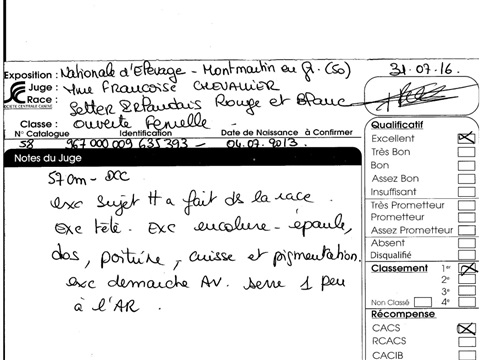 Exposition : Nationale d'Elevage - Montmartin en Gr. (50) 31.07.16.
Juge : Mme Françoise CHEVALIER
SOCIÉTÉ CENTRALE CANINE
Race : Setter Irlandais Rouge et Blanc
Classe : Ouverte Femelle -
N° Catalogue Identification Date de Naissance à Confirmer
58 967 000 009 635 393 - 04.07.2013.
Notes du Juge
57 cm - DCC
exc sujet tt à fait ds la race
exc tête. Exc encolure - épaule,
dos, poitrine, cuisse et pigmentation.
exc démarche AV. serre 1 peu
à l'AR.
Qualificatif
Excellent
Très Bon
Bon
Assez Bon
Insuffisant
Très Prometteur
Prometteur
Assez Prometteur
Absent
Disqualifié
Classement 1er
2e
3e
Non Classé 4e
Récompense
CACS
RCACS
CACIB